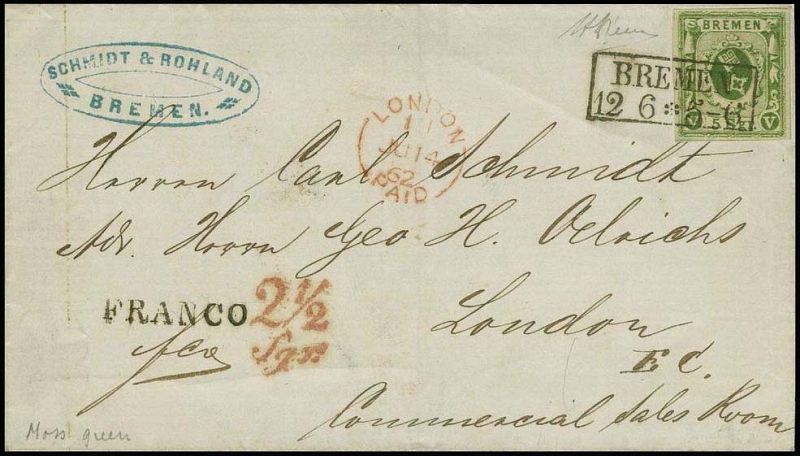 SCHMIDT & ROHLAND
BREMEN.
BREMEN
5 SGR.
BREMEN
12 6 * 5-6
LONDON
JU 14
62
PAID
Herren Carl Schmidt
Adr. Herrn Geo H. Oelrichs
FRANCO
2 1/2
Sgr
fco
London
E C.
Commercial Sales Room
Moss green